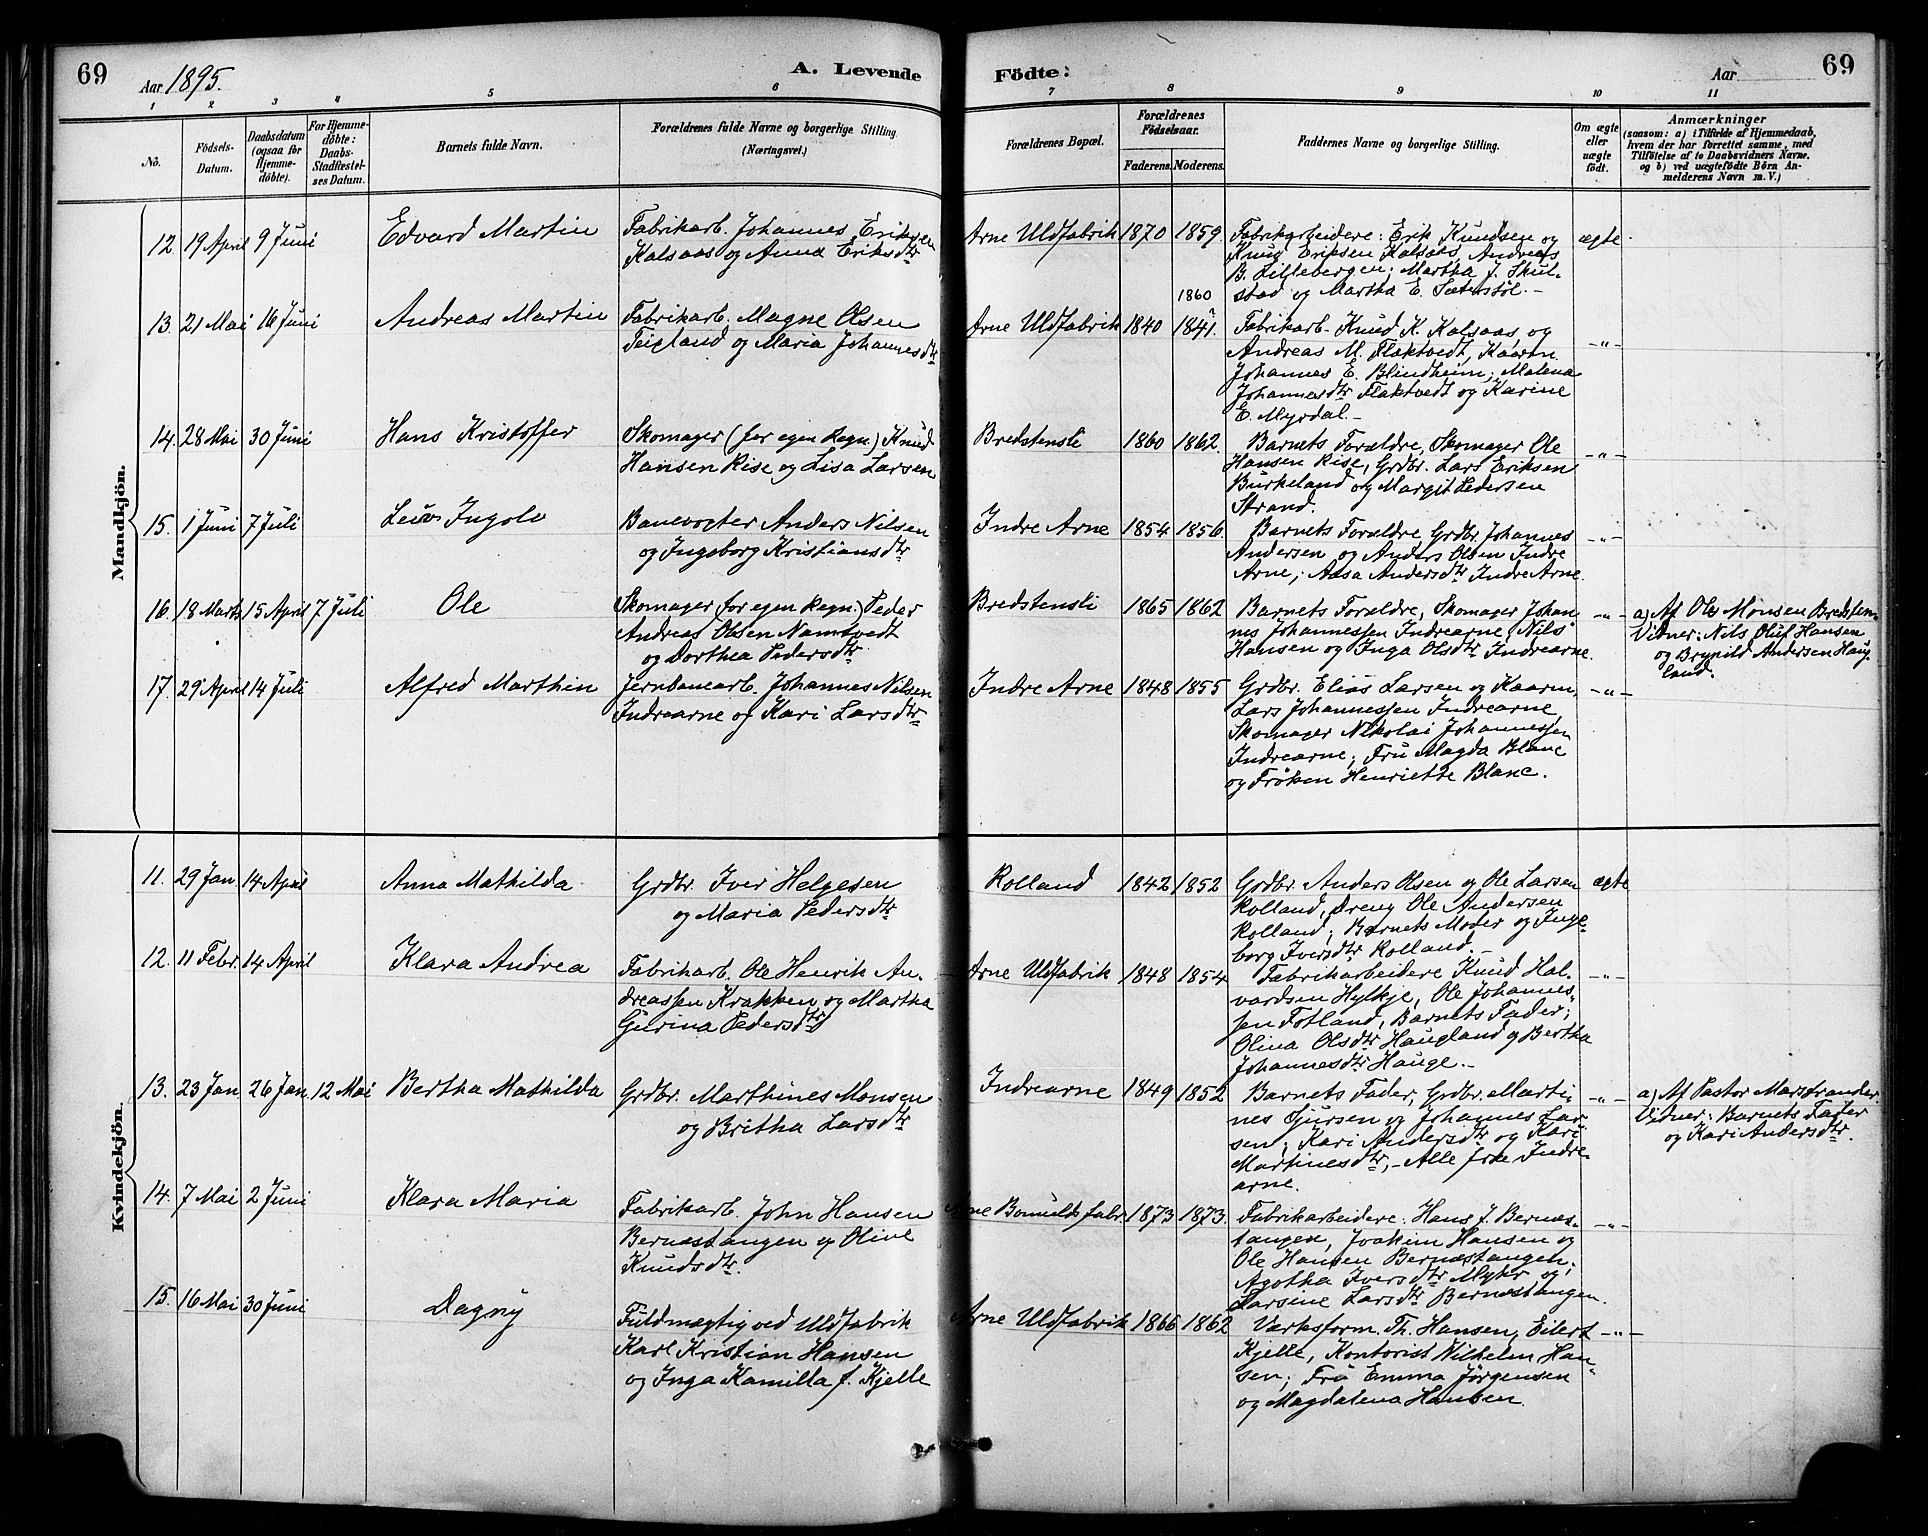 69
Aar 1895.
A. Levende
Födte:
Aar
69
1
2
3
4
5
6
7
8
9
10
11
No.
Födsels-
Datum.
Daabsdatum
(ogsaa for
Hjemme-
döbte).
For Hjemme-
döbte:
Daabs-
Stadfæstel-
ses Datum.
Barnets fulde Navn.
Forældrenes fulde Navne og borgerlige Stilling.
(Næringsvei.)
Forældrenes Bopæl.
Forældrenes
Födselsaar.
Faderens.
Moderens.
Faddernes Navne og borgerlige Stilling.
Om ægte
eller
uægte
födt.
Anmærkninger
(saasom: a) i Tilfælde af Hjemmedaab,
hvem der har forrettet samme, med
Tilföielse af to Daabsvidners Navne,
og b) ved uægtefödte Börn An-
melderens Navn m. V.)
Mandkjön.
12. 19 April 9 Juni
Edvard Martin
Fabrikarb. Johannes Eriksen
Kalsaas og Anna Eriksdtr
Arne Uldfabrik 1870 1859
Fabrikarbeidere: Erik Knudsen og
Knug Eriksen Kalsaas, Andreas
B. Lillebergen; Martha J. Skul-
stad og Martha E. Sæterstöl.-
ægte
13. 21 Mai 16 Juni
Andreas Martin
Fabrikarb. Magne Olsen
Teigland og Maria Johannesdtr
Arne Uldfabrik 1840 1841.
1860
Fabrikarb. Knud K. Kalsaas, og
Andreas M. Flaktvedt, Kaarm.
Johannes E. Blindheim; Malena
Johannesdtr Flaktvedt og Karine
E. Myrdal.-
-„-
14. 28 Mai 30 Juni
Hans Kristoffer
Skomager (for egen Regn.) Knud
Hansen Rise og Lisa Larsen
Bredstensli 1860 1862.
Barnets Forældre, Skomager Ole
Hansen Rise, Grdbr. Lars Eriksen
Burkeland og Margit Pedersen
Strand.
-„-
15. 1 Juni 7 Juli
Ingolv
Banevogter Anders Nilsen
og Ingeborg Kristiansdtr
Indre Arne 1854 1856.
Barnets Forældre, Grdbr. Johannes
Andersen og Anders Olsen Indre
Arne; Aasa Andersdtr Indre Arne.
-„-
16. 18 Marts 15 April 7 Juli
Ole
Skomager (for egen Regn.) Peder
Andreas Olsen Namtvedt
og Dorthea Pedersdtr
Bredstensli 1865 1862
Barnets Forældre, Skomager Johan-
nes Johannessen Indrearne, Nils
Hansen og Inga Olsdtr Indrearne.
-„-
a) Af Ole Monsen Bredsten-
Vidner: Nils Oluf Hansen
og Brynild Andersen Haug-
land.
17. 29 April 14 Juli
Alfred Marthin
Jernbanearb. Johannes Nilsen
Indrearne og Kari Larsdtr
Indre Arne 1848 1855
Grdbr. Elias Larsen og Kaarm.
Lars Johannessen Indrearne,
Skomager Nikolai Johannessen
Indrearne; Fru Magda Blanc
og Fröken Henriette Blanc.
-„-
Kvindekjön.
11. 29 Jan 14 April
Anna Mathilda
Grdbr. Iver Helgesen
og Maria Pedersdtr
Rolland 1842 1852
Grdbr. Anders Olsen og Ole Larsen
Rolland, Dreng Ole Andersen
Rolland; Barnets Moder og Inge-
borg Iversdtr Rolland.-
ægte
12. 11 Febr. 14 April
Klara Andrea
Fabrikarb. Ole Henrik An-
dreassen Krakken og Martha
Gurina Pedersdtr
Arne Uldfabrik 1848 1854
Fabrikarbeidere Knud Hal-
vardsen Hylkje, Ole Johannes-
sen Fotland, Barnets Fader;
Olina Olsdtr Haugland og Bertha
Johannesdtr Hauge.-
-„-
13. 23 Jan 26 Jan. 12 Mai
Bertha Mathilda
Grdbr. Marthines Monsen
og Britha Larsdtr
Indrearne 1849 1852
Barnets Fader, Grdbr. Marti-
nes Gjursen og Johannes Lar-
sen; Kari Andersdtr og Kari
Martinesdtr,- Alle fra Indre-
arne.
-„-
a) Af Pastor Marstrander.
Vidner: Barnets Fader
og Kari Andersdtr.
14. 7 Mai 2 Juni
Klara Maria
Fabrikarb. John Hansen
Bernæstangen og Olive
Knudsdtr.
Arne Bomuldsfabr. 1873 1873.
Fabrikarbeidere: Hans J. Bernæs-
tangen, Joakim Hansen og
Ole Hansen Bernæstangen;
Agotha Iversdtr Myhr og
Larsine Larsdtr Bernæstangen.
-„-
15. 16 Mai 30 Juni
Dagny
Fuldmægtig ved Uldfabrik
Karl Kristian Hansen
og Inga Kamilla f. Kjelle
Arne Uldfabrik 1866 1862
Værksform. Th. Hansen, Eilert
Kjelle, Kontorist Wilhelm Han-
sen; Fru Emma Jörgensen
og Magdalena Hansen.
-„-